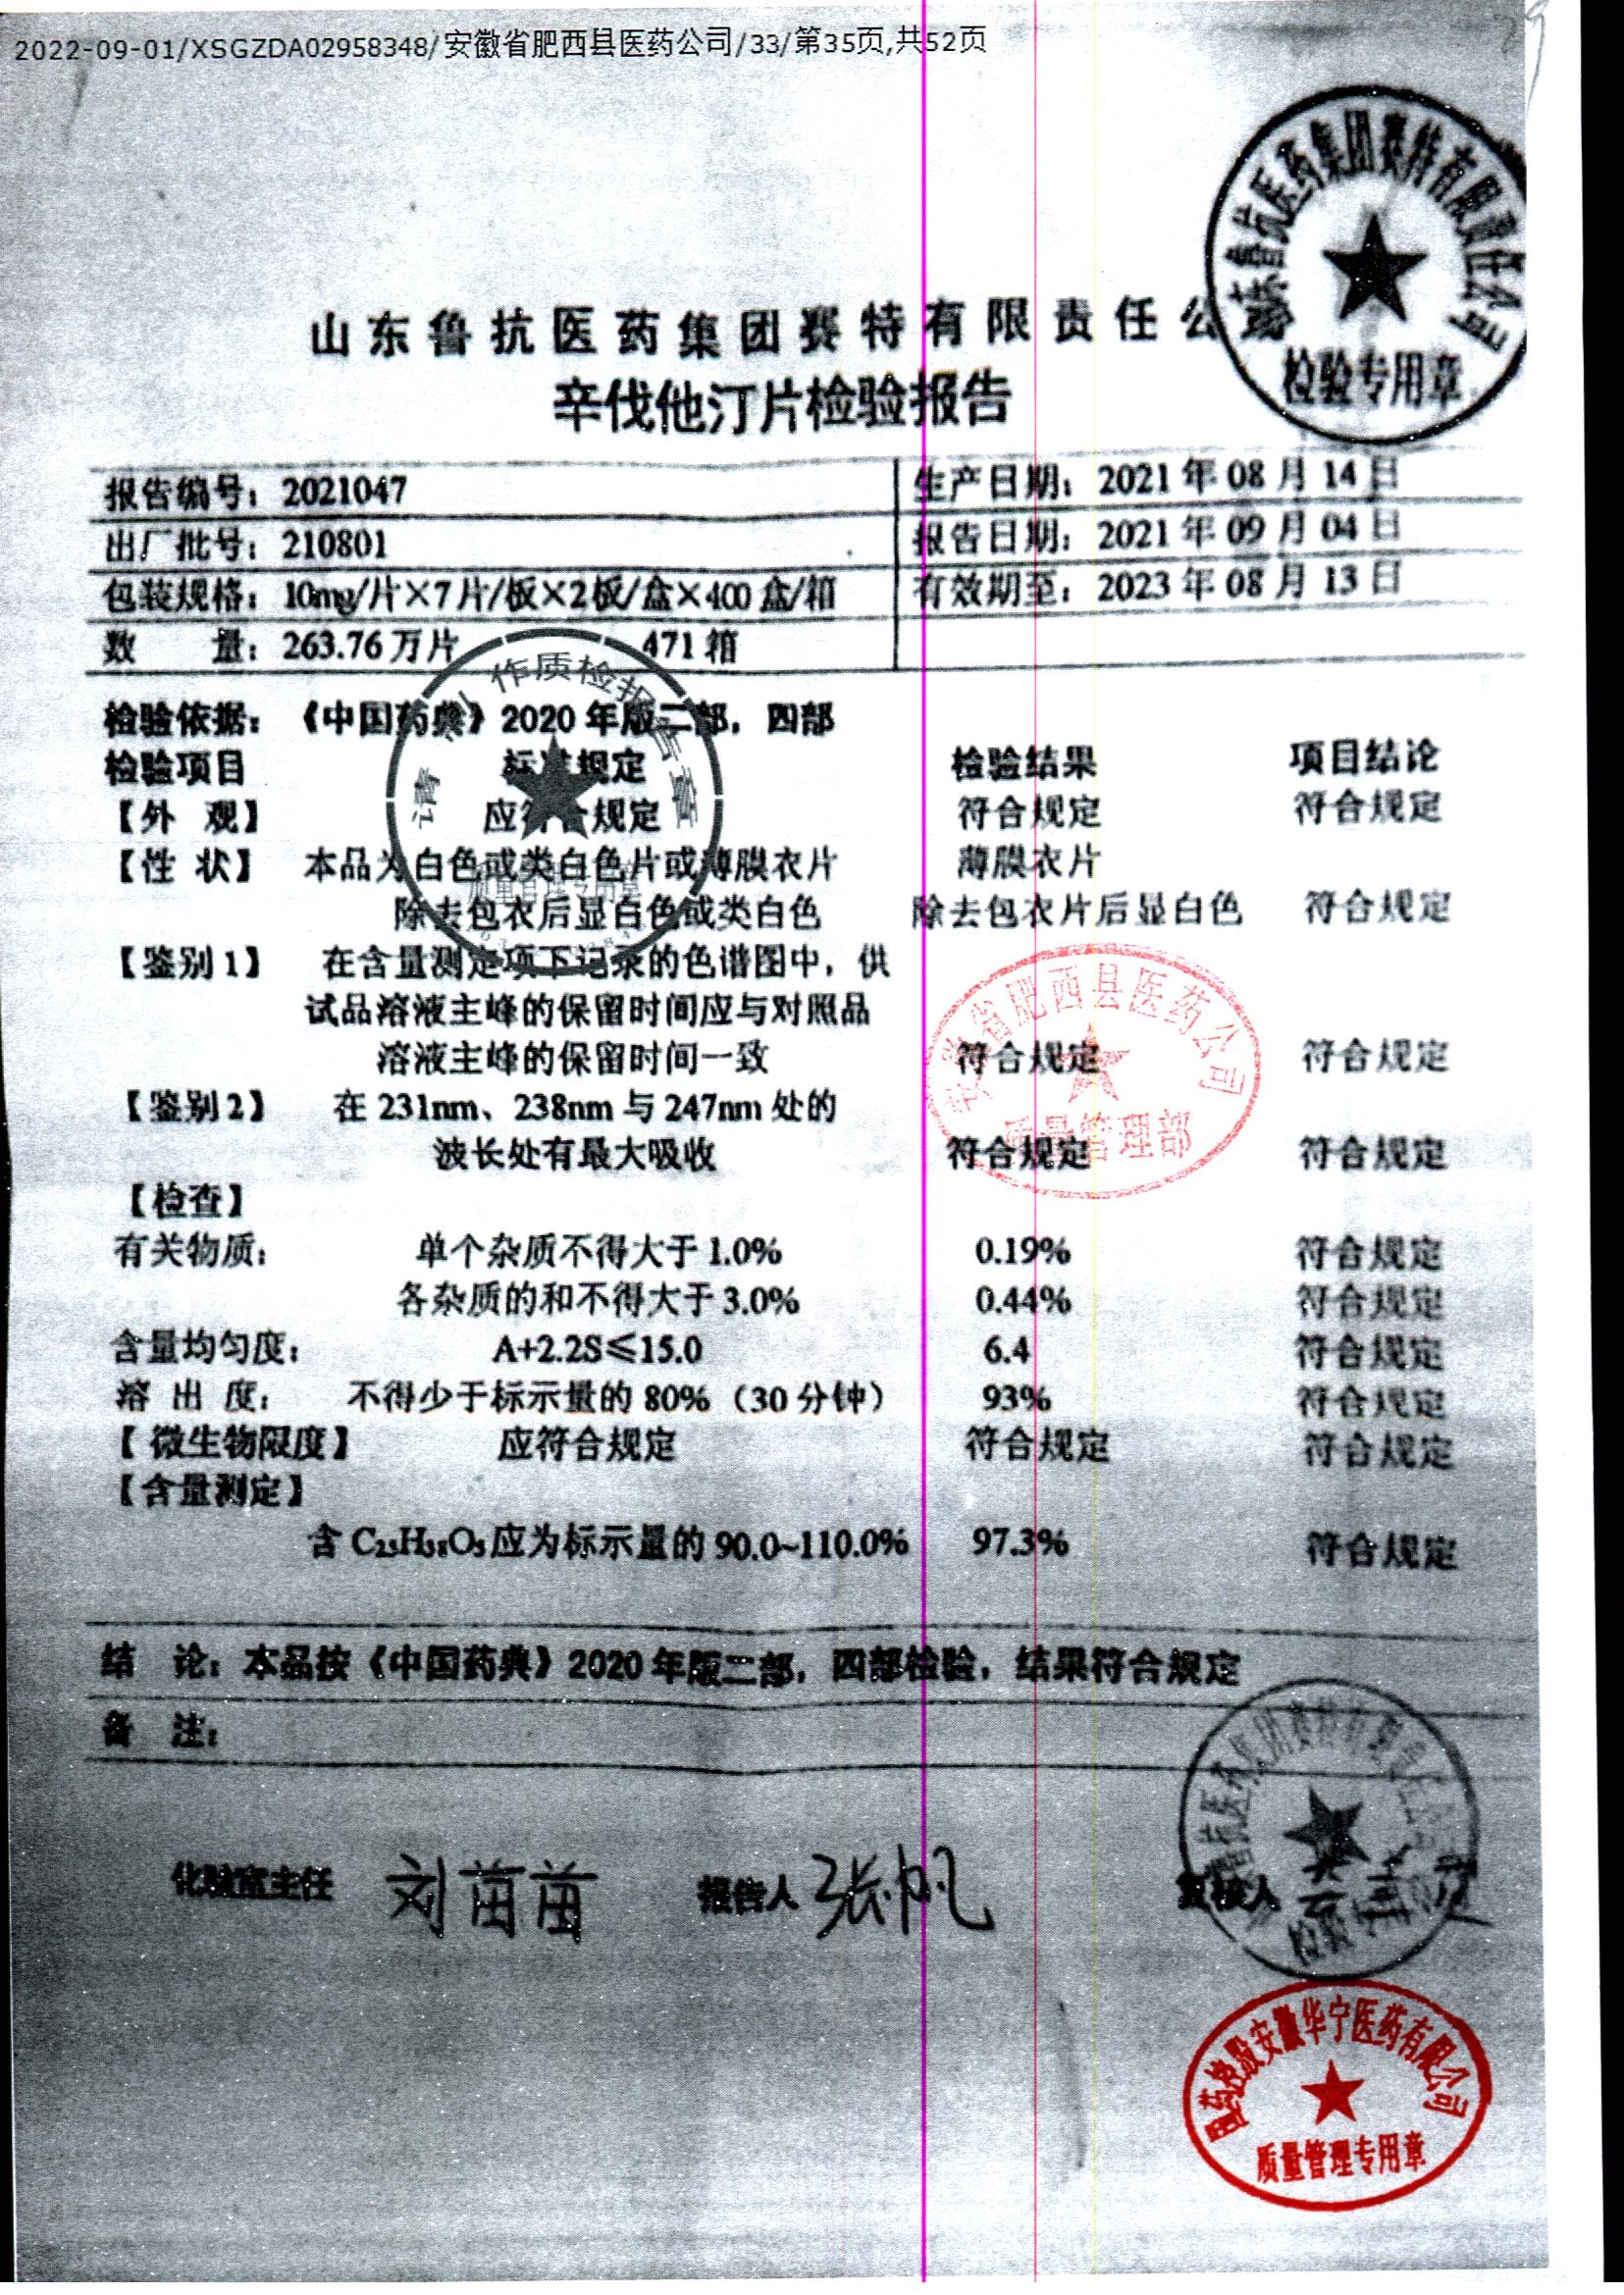 2022-09-01/XSGZDA02958348/安徽省肥西县医药公司/33/第35页,共52页
山东鲁抗医药集团赛特有限责任公
检验专用章
辛伐他汀片检验报告
报告编号：2021047 生产日期：2021年08月14日
出厂批号：210801 报告日期：2021年09月04日
包装规格：10mg/片×7片/板×2板/盒×400盒/箱 有效期至：2023年08月13日
数 量：263.76万片 471箱
检验依据：《中国药典》2020年版二部，四部
检验项目 标准规定 检验结果 项目结论
【外 观】 应符合规定 符合规定 符合规定
【性 状】 本品为白色或类白色片或薄膜衣片 薄膜衣片
除去包衣后显白色或类白色 除去包衣片后显白色 符合规定
【鉴别1】 在含量测定项下记录的色谱图中，供
试品溶液主峰的保留时间应与对照品
溶液主峰的保留时间一致 符合规定 符合规定
安徽省肥西县医药公司
质量管理部
【鉴别2】 在231nm、238nm与247nm处的
波长处有最大吸收 符合规定 符合规定
【检查】
有关物质： 单个杂质不得大于1.0% 0.19% 符合规定
各杂质的和不得大于3.0% 0.44% 符合规定
含量均匀度： A+2.2S≤15.0 6.4 符合规定
溶 出 度： 不得少于标示量的80%（30分钟） 93% 符合规定
【微生物限度】 应符合规定 符合规定 符合规定
【含量测定】
含C₂₅H₃₈O₅应为标示量的90.0~110.0% 97.3% 符合规定
结 论：本品按《中国药典》2020年版二部，四部检验，结果符合规定
备 注：
化验室主任 刘苗苗 报告人 张帆 复核人
国药控股安徽华宁医药有限公司
质量管理专用章